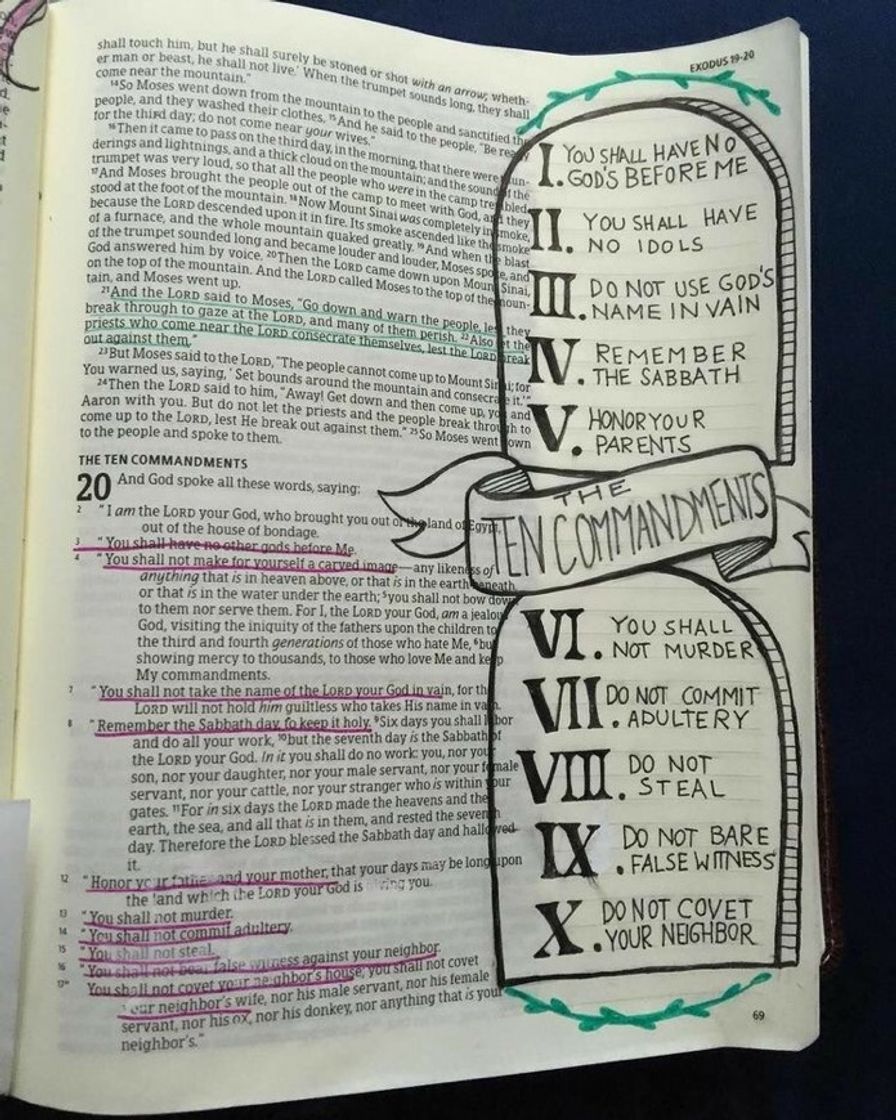 EXODUS 19-20
shall touch him, but he shall surely be stoned or shot with an arrow; wheth-
er man or beast, he shall not live.' When the trumpet sounds long, they shall
come near the mountain."
14So Moses went down from the mountain to the people and sanctified the
people, and they washed their clothes. 15And he said to the people, "Be ready
for the third day; do not come near your wives."
16Then it came to pass on the third day, in the morning, that there were thun-
derings and lightnings, and a thick cloud on the mountain; and the sound of the
trumpet was very loud, so that all the people who were in the camp trembled.
17And Moses brought the people out of the camp to meet with God, and they
stood at the foot of the mountain. 18Now Mount Sinai was completely in smoke,
because the LORD descended upon it in fire. Its smoke ascended like the smoke
of a furnace, and the whole mountain quaked greatly. 19And when the blast
of the trumpet sounded long and became louder and louder, Moses spoke, and
God answered him by voice. 20Then the LORD came down upon Mount Sinai,
on the top of the mountain. And the LORD called Moses to the top of the moun-
tain, and Moses went up.
21And the LORD said to Moses, "Go down and warn the people, lest they
break through to gaze at the LORD, and many of them perish. 22Also let the
priests who come near the LORD consecrate themselves, lest the LORD break
out against them."
23But Moses said to the LORD, "The people cannot come up to Mount Sinai; for
You warned us, saying, 'Set bounds around the mountain and consecrate it.'"
24Then the LORD said to him, "Away! Get down and then come up, you and
Aaron with you. But do not let the priests and the people break through to
come up to the LORD, lest He break out against them." 25So Moses went down
to the people and spoke to them.
THE TEN COMMANDMENTS
20 And God spoke all these words, saying:
2 "I am the LORD your God, who brought you out of the land of Egypt,
out of the house of bondage.
3 "You shall have no other gods before Me.
4 "You shall not make for yourself a carved image—any likeness of
anything that is in heaven above, or that is in the earth beneath,
or that is in the water under the earth; 5you shall not bow down
to them nor serve them. For I, the LORD your God, am a jealous
God, visiting the iniquity of the fathers upon the children to
the third and fourth generations of those who hate Me, 6but
showing mercy to thousands, to those who love Me and keep
My commandments.
7 "You shall not take the name of the LORD your God in vain, for the
LORD will not hold him guiltless who takes His name in vain.
8 "Remember the Sabbath day, to keep it holy. 9Six days you shall labor
and do all your work, 10but the seventh day is the Sabbath of
the LORD your God. In it you shall do no work: you, nor your
son, nor your daughter, nor your male servant, nor your female
servant, nor your cattle, nor your stranger who is within your
gates. 11For in six days the LORD made the heavens and the
earth, the sea, and all that is in them, and rested the seventh
day. Therefore the LORD blessed the Sabbath day and hallowed
it.
12 "Honor your father and your mother, that your days may be long upon
the land which the LORD your God is giving you.
13 "You shall not murder.
14 "You shall not commit adultery.
15 "You shall not steal.
16 "You shall not bear false witness against your neighbor.
17 "You shall not covet your neighbor's house; you shall not covet
your neighbor's wife, nor his male servant, nor his female
servant, nor his ox, nor his donkey, nor anything that is your
neighbor's."
I. YOU SHALL HAVE NO
GOD'S BEFORE ME
II. YOU SHALL HAVE
NO IDOLS
III. DO NOT USE GOD'S
NAME IN VAIN
IV. REMEMBER
THE SABBATH
V. HONOR YOUR
PARENTS
THE
TEN COMMANDMENTS
VI. YOU SHALL
NOT MURDER
VII. DO NOT COMMIT
ADULTERY
VIII. DO NOT
STEAL
IX. DO NOT BARE
FALSE WITNESS
X. DO NOT COVET
YOUR NEIGHBOR
69